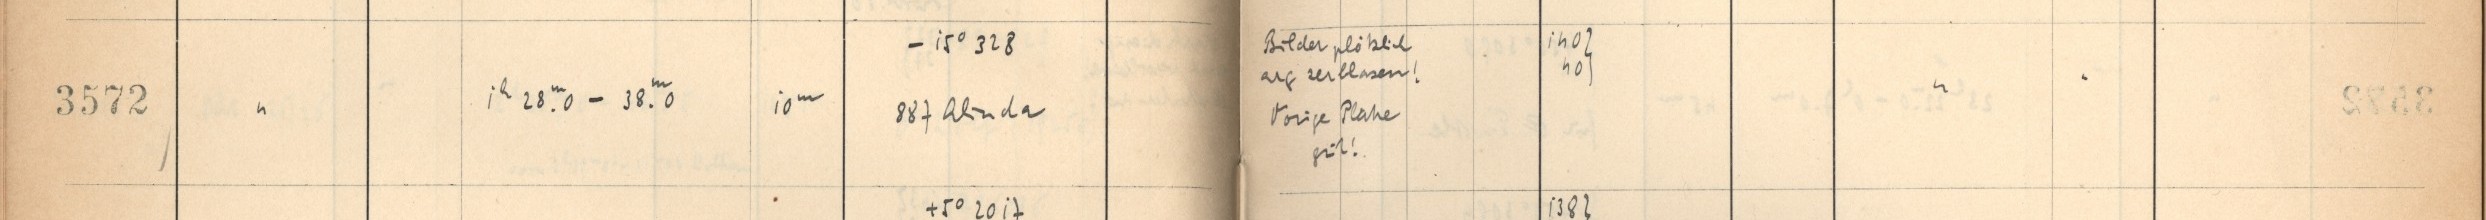 - 15° 328
3572 " 1h 28m.0 - 38m.0 10m 887 Alinda
Bilder plötzlich
arg zerblasen!
Vorige Platte
gut!
140}
40}
" "
+5° 2017
138}